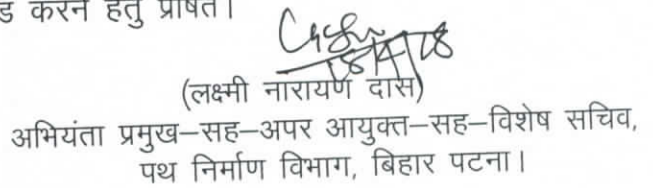 ड करने हेतु प्रेषित।
18/9/18
(लक्ष्मी नारायण दास)
अभियंता प्रमुख–सह–अपर आयुक्त–सह–विशेष सचिव,
पथ निर्माण विभाग, बिहार पटना।